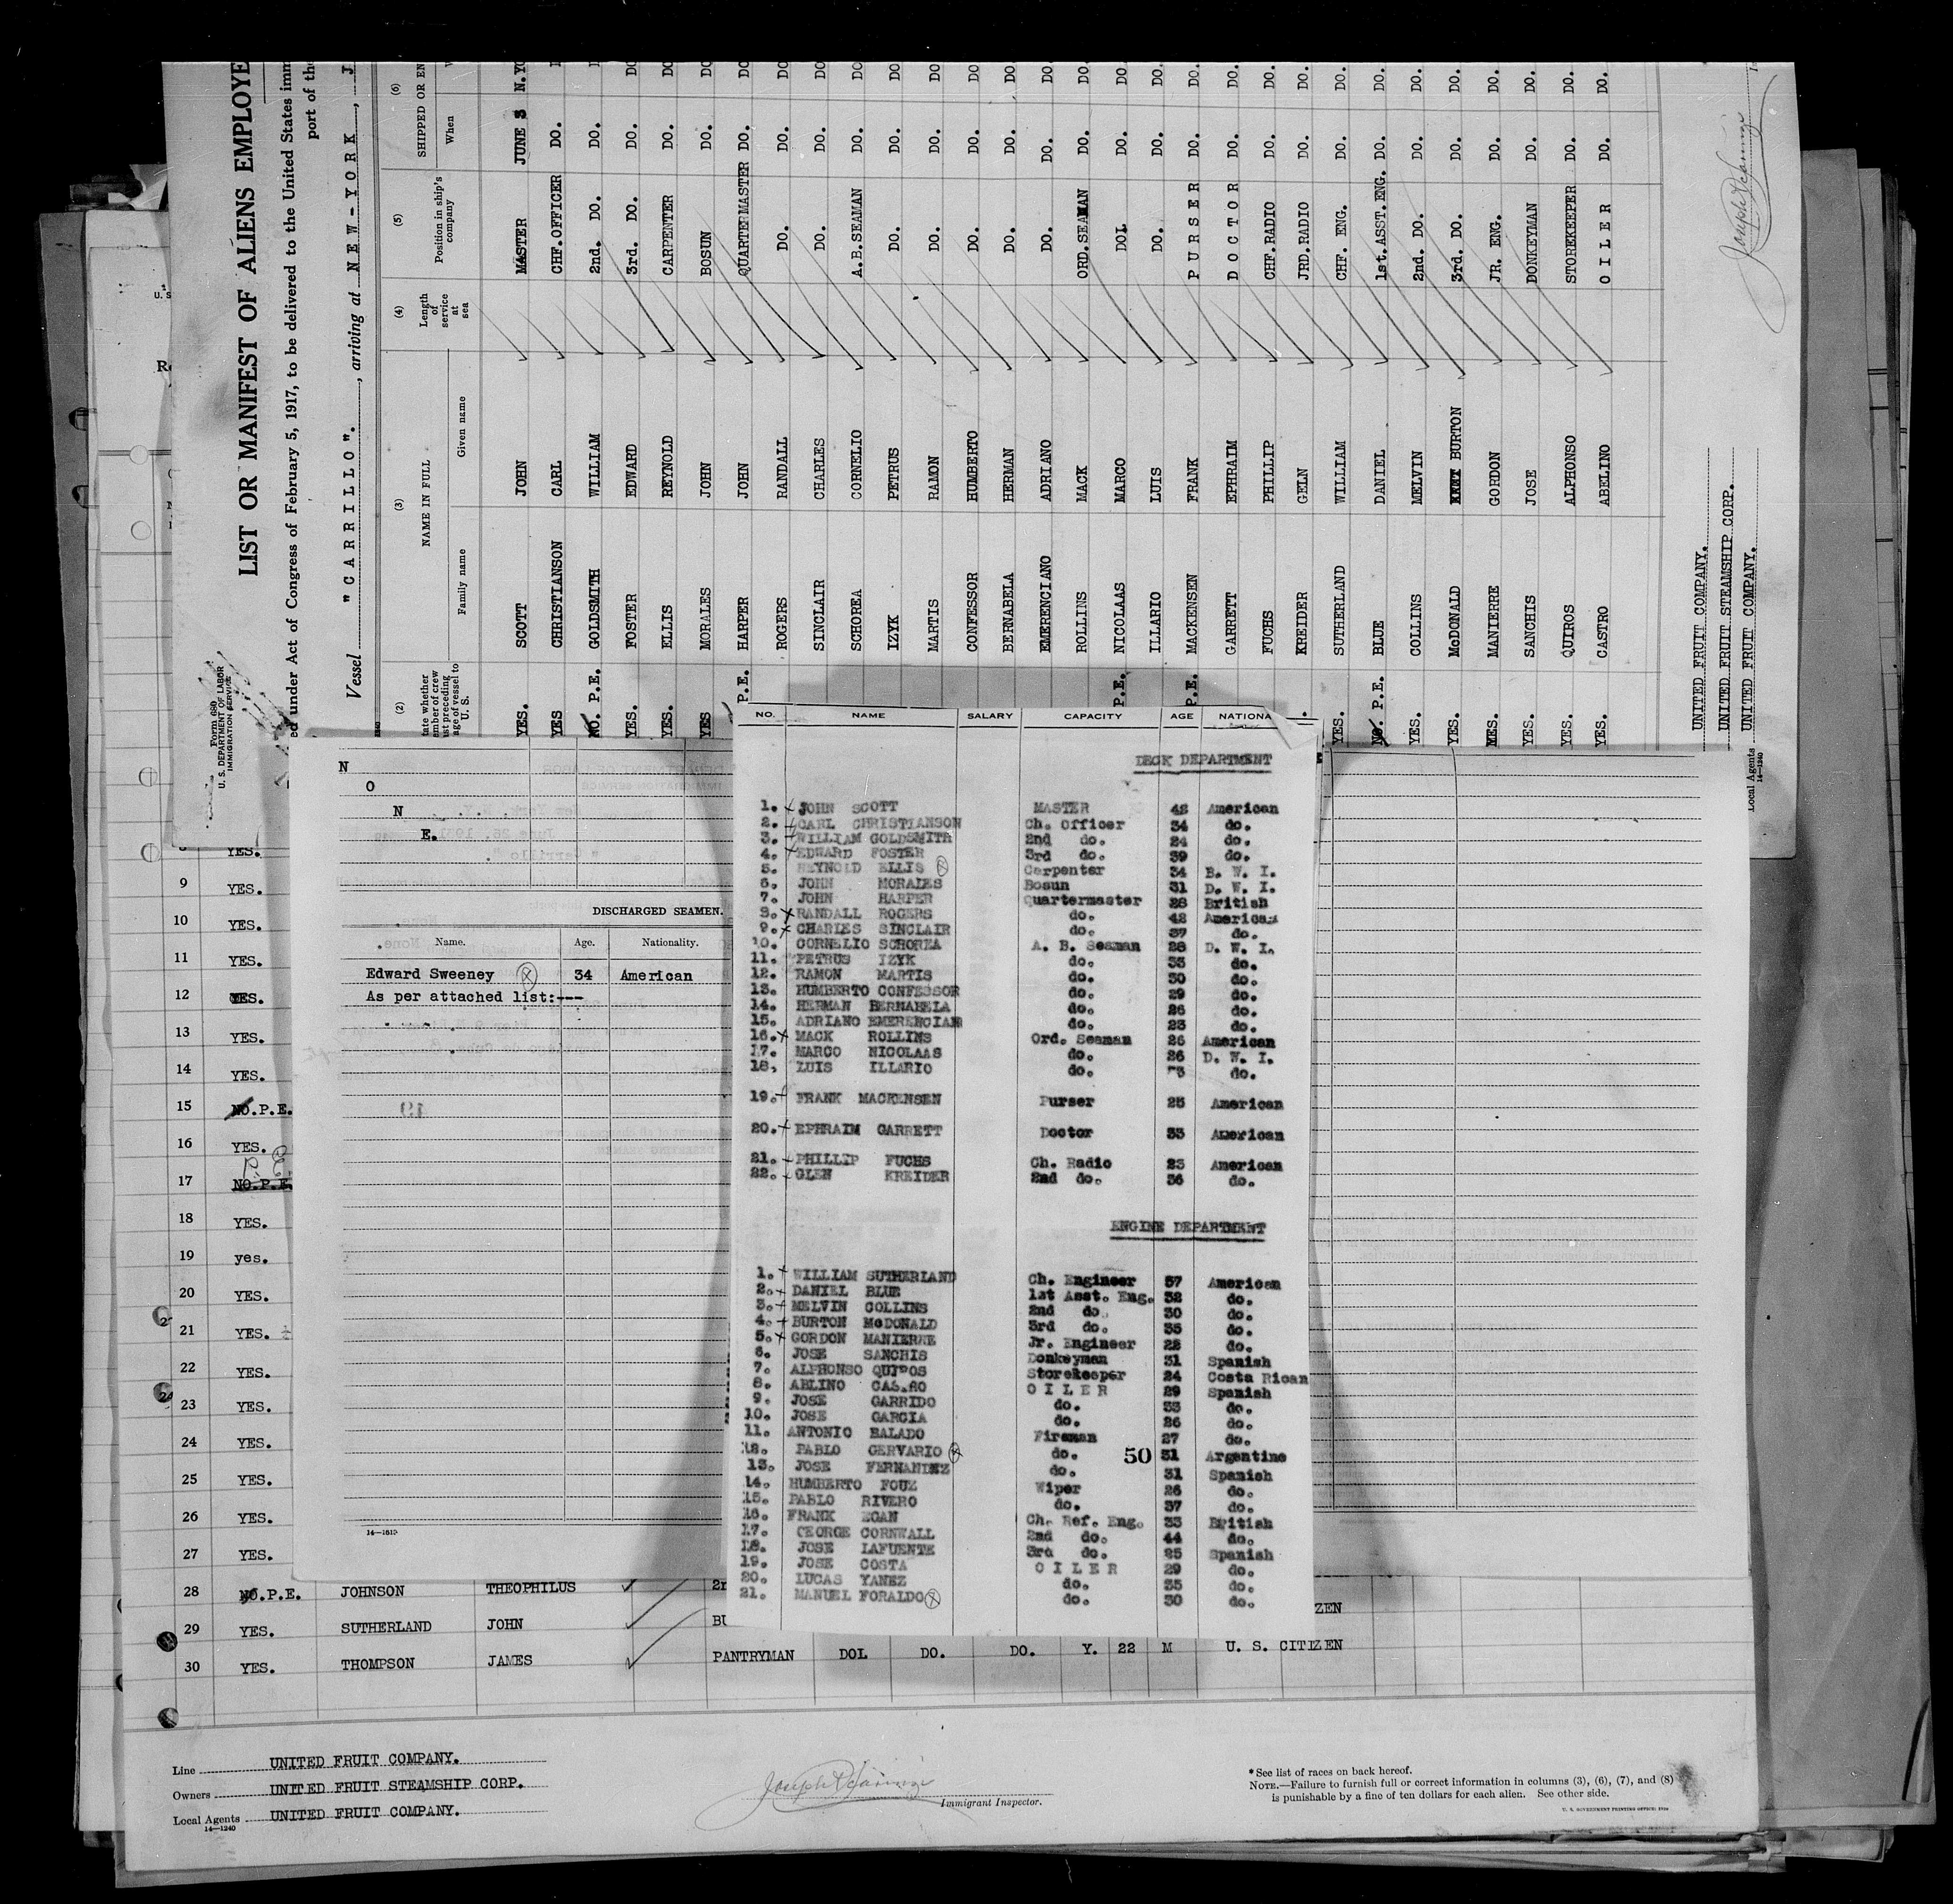 LIST OR MANIFEST OF ALIENS EMPLOYE
ed under Act of Congress of February 5, 1917, to be delivered to the United States imm
port of the
Form 680
U. S. DEPARTMENT OF LABOR
IMMIGRATION SERVICE
Vessel "CARRILLO". , arriving at NEW-YORK , J
(2) (3) (4) (5) (6)
NAME IN FULL
Family name Given name
Length of service at sea
Position in ship's company
SHIPPED OR EN
When
YES. SCOTT JOHN MASTER JUNE 3 N.YO
YES CHRISTIANSON CARL CHF.OFFICER DO.
NO. P.E. GOLDSMITH WILLIAM 2nd. DO. DO.
YES. FOSTER EDWARD 3rd. DO. DO. DO
YES. ELLIS REYNOLD CARPENTER DO. DO
YES MORALES JOHN BOSUN DO. DO
P.E. HARPER JOHN QUARTERMASTER DO. DO
ROGERS RANDALL DO. DO. DO
SINCLAIR CHARLES DO. DO. DO
SCHOREA CORNELIO A.B.SEAMAN DO. DO
IZYK PETRUS DO. DO. DO
MARTIS RAMON DO. DO. DO
CONFESSOR HUMBERTO DO. DO. DO
BERNABELA HERMAN DO. DO. DO
EMERENCIANO ADRIANO DO. DO. DO.
ROLLINS MACK ORD.SEAMAN DO. DO.
P.E. NICOLAAS MARCO DOL DO. DO.
ILLARIO LUIS DO. DO. DO.
P.E. MACKENSEN FRANK PURSER DO. DO.
GARRETT EPHRAIM DOCTOR DO. DO.
FUCHS PHILLIP CHF.RADIO DO. DO.
KREIDER GELN JRD.RADIO DO. DO.
YES. SUTHERLAND WILLIAM CHF. ENG. DO. DO.
NO. P.E. BLUE DANIEL 1st.ASST.ENG. DO. DO.
YES. COLLINS MELVIN 2nd. DO. DO. DO.
YES. McDONALD BURTON 3rd. DO. DO. DO.
YES. MANIERRE GORDON JR. ENG. DO. DO.
YES. SANCHIS JOSE DONKEYMAN DO. DO.
YES. QUIROS ALPHONSO STOREKEEPER DO. DO.
YES. CASTRO ABELINO OILER DO. DO.
UNITED FRUIT COMPANY.
UNITED FRUIT STEAMSHIP CORP.
Local Agents UNITED FRUIT COMPANY.
14—1240
N
O
N
E.
DISCHARGED SEAMEN.
Name. Age. Nationality.
Edward Sweeney 34 American
As per attached list:---
14—1513
NO. NAME SALARY CAPACITY AGE NATIONA
DECK DEPARTMENT
1. JOHN SCOTT MASTER 42 American
2. CARL CHRISTIANSON Ch. Officer 34 do.
3. WILLIAM GOLDSMITH 2nd do. 24 do.
4. EDWARD FOSTER 3rd do. 39 do.
5. REYNOLD ELLIS Carpenter 34 B. W. I.
6. JOHN MORALES Bosun 31 D. W. I.
7. JOHN HARPER Quartermaster 28 British
8. RANDALL ROGERS do. 42 American
9. CHARLES SINCLAIR do. 37 do.
10. CORNELIO SCHOREA A. B. Seaman 28 D. W. I.
11. PETRUS IZYK do. 33 do.
12. RAMON MARTIS do. 30 do.
13. HUMBERTO CONFESSOR do. 29 do.
14. HERMAN BERNABELA do. 26 do.
15. ADRIANO EMERENCIAN do. 23 do.
16. MACK ROLLINS Ord. Seaman 26 American
17. MARCO NICOLAAS do. 26 D. W. I.
18. LUIS ILLARIO do. do.
19. FRANK MACKENSEN Purser 25 American
20. EPHRAIM GARRETT Doctor 33 American
21. PHILLIP FUCHS Ch. Radio 23 American
22. GLEN KREIDER 2nd do. 36 do.
ENGINE DEPARTMENT
1. WILLIAM SUTHERLAND Ch. Engineer 57 American
2. DANIEL BLUE 1st Asst. Eng. 32 do.
3. MELVIN COLLINS 2nd do. 30 do.
4. BURTON McDONALD 3rd do. 35 do.
5. GORDON MANIERRE Jr. Engineer 28 do.
6. JOSE SANCHIS Donkeyman 31 Spanish
7. ALPHONSO QUIROS Storekeeper 24 Costa Rican
8. ABLINO CASTRO OILER 29 Spanish
9. JOSE GARRIDO do. 33 do.
10. JOSE GARCIA do. 26 do.
11. ANTONIO BALADO Fireman 27 do.
12. PABLO GERVARIO do. 50 31 Argentine
13. JOSE FERNANDEZ do. 31 Spanish
14. HUMBERTO FOUZ Wiper 26 do.
15. PABLO RIVERO do. 37 do.
16. FRANK EGAN Ch. Ref. Eng. 33 British
17. GEORGE CORNWALL 2nd do. 44 do.
18. JOSE LAFUENTE 3rd do. 25 Spanish
19. JOSE COSTA OILER 29 do.
20. LUCAS YANEZ do. 35 do.
21. MANUEL FORALDO do. 30 do.
YES.
9 YES.
10 YES.
11 YES.
12 YES.
13 YES.
14 YES.
15 NO.P.E.
16 YES.
17 NO.P.E.
18 YES.
19 yes.
20 YES.
21 YES.
22 YES.
23 YES.
24 YES.
25 YES.
26 YES.
27 YES.
28 NO.P.E. JOHNSON THEOPHILUS
29 YES. SUTHERLAND JOHN BU ZEN
30 YES. THOMPSON JAMES PANTRYMAN DOL DO. DO. Y. 22 M U. S. CITIZEN
Line UNITED FRUIT COMPANY.
Owners UNITED FRUIT STEAMSHIP CORP.
Local Agents UNITED FRUIT COMPANY.
14—1240
Immigrant Inspector.
*See list of races on back hereof.
NOTE.—Failure to furnish full or correct information in columns (3), (6), (7), and (8)
is punishable by a fine of ten dollars for each alien. See other side.